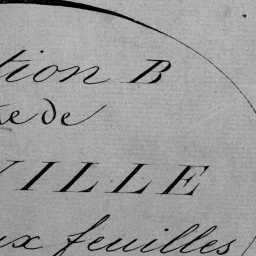 tion B
te de
VILLE
ux feuilles